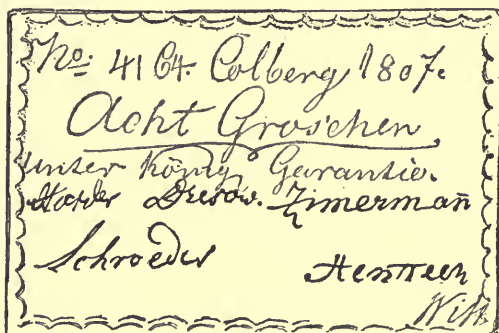 No: 4164. Colberg 1807.
Acht Groschen
unter König Garantie.
Dresow. Zimermañ
Schroeder Hentsch